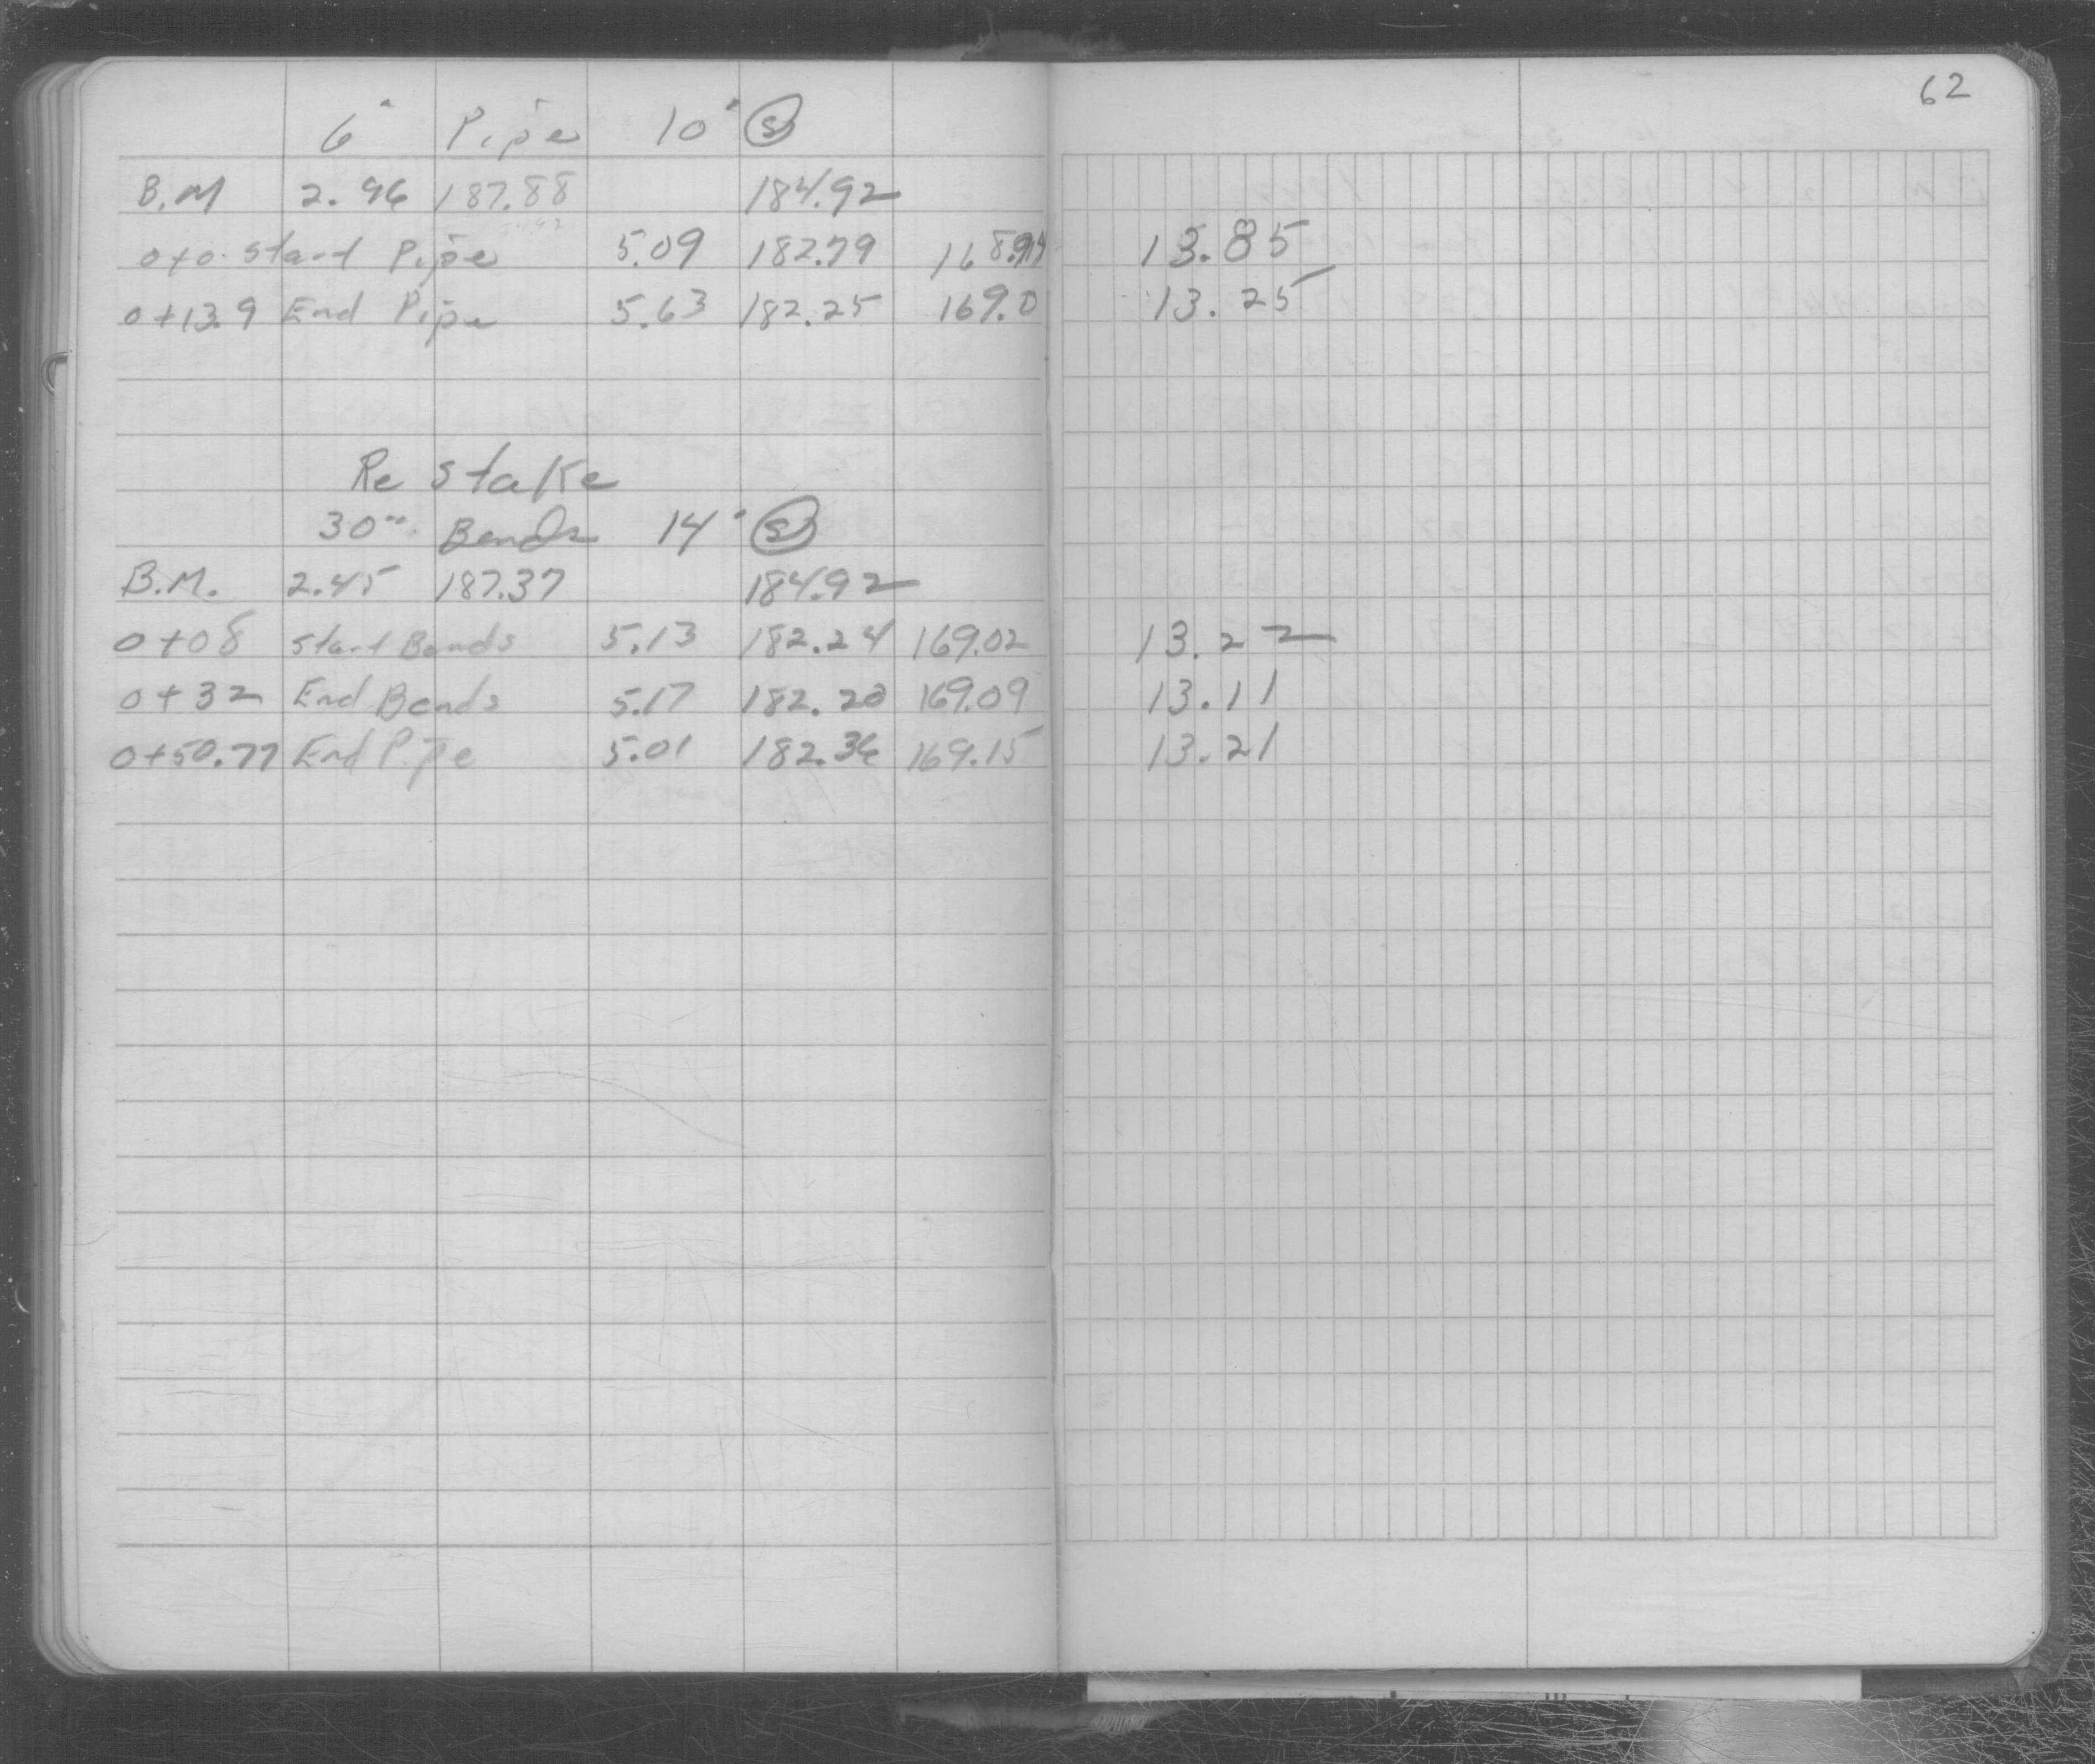 62
6" Pipe 10' Ⓢ
B.M 2.96 187.88 184.92
0+0 Start Pipe 5.09 182.79 168.94 13.85
0+13.9 End Pipe 5.63 182.25 169.0 13.25
Re Stake
30" Bends 14' Ⓢ
B.M. 2.45 187.37 184.92
0+08 Start Bends 5.13 182.24 169.02 13.22
0+32 End Bends 5.17 182.20 169.09 13.11
0+50.77 End Pipe 5.01 182.36 169.15 13.21